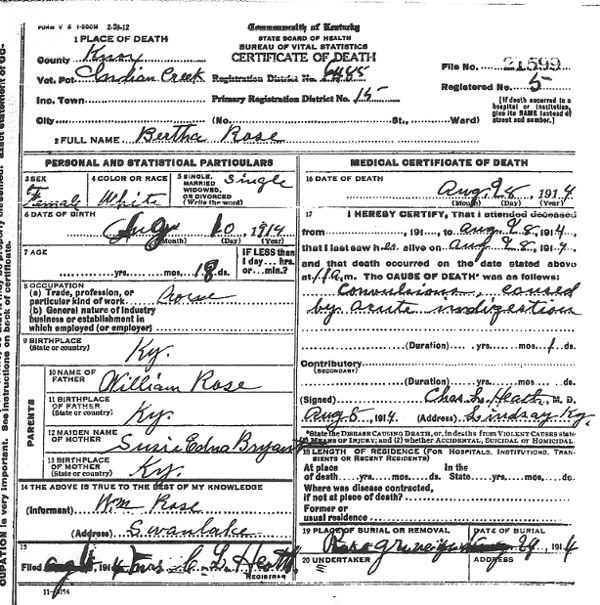 FORM V S 1-500M 2-29-12
Commonwealth of Kentucky
STATE BOARD OF HEALTH
BUREAU OF VITAL STATISTICS
CERTIFICATE OF DEATH
1 PLACE OF DEATH
County Knox
Vot. Pct. Indian Creek Registration District No. 6485
Inc. Town Primary Registration District No. 15
City (No. St., Ward)
File No. 21599
Registered No. 5
[If death occurred in a
hospital or institution,
give its NAME instead of
street and number.]
2 FULL NAME Bertha Rose
PERSONAL AND STATISTICAL PARTICULARS
3 SEX
Female
4 COLOR OR RACE
White
5 SINGLE,
MARRIED
WIDOWED,
OR DIVORCED
(Write the word)
Single
6 DATE OF BIRTH
Aug 10 1914
(Month) (Day) (Year)
7 AGE
yrs. mos. 18 ds.
IF LESS than
1 day hrs.
or min.?
8 OCCUPATION
(a) Trade, profession, or
particular kind of work
(b) General nature of industry
business or establishment in
which employed (or employer)
9 BIRTHPLACE
(State or country) Ky.
PARENTS
10 NAME OF
FATHER William Rose
11 BIRTHPLACE
OF FATHER
(State or country) Ky.
12 MAIDEN NAME
OF MOTHER Susie Edna Bryant
13 BIRTHPLACE
OF MOTHER
(State or country) Ky.
14 THE ABOVE IS TRUE TO THE BEST OF MY KNOWLEDGE
(Informant) Wm Rose
(Address) Swanlake
15
Filed 191 4 C L Heath
REGISTRAR
MEDICAL CERTIFICATE OF DEATH
16 DATE OF DEATH
Aug 28, 1914
(Month) (Day) (Year)
17 I HEREBY CERTIFY, That I attended deceased
from , 191 , to Aug 28, 1914,
that I last saw her alive on Aug 28, 1914,
and that death occurred on the date stated above
at 11 a.m. The CAUSE OF DEATH* was as follows:
Convulsions, caused
by acute indigestion
(Duration) yrs. mos. 1 ds.
Contributory
(SECONDARY)
(Duration) yrs. mos. ds.
(Signed) Chas. L. Heath, M. D.
Aug 8, 1914 (Address) Lindsay Ky.
*State the DISEASE CAUSING DEATH, or, in deaths from VIOLENT CAUSES state
(1) MEANS OF INJURY; and (2) whether ACCIDENTAL, SUICIDAL or HOMICIDAL
18 LENGTH OF RESIDENCE (FOR HOSPITALS, INSTITUTIONS, TRANSIENTS OR RECENT RESIDENTS)
At place In the
of death yrs. mos. ds. State yrs. mos. ds.
Where was disease contracted,
if not at place of death?
Former or
usual residence
19 PLACE OF BURIAL OR REMOVAL
DATE OF BURIAL
Aug 29, 1914
20 UNDERTAKER
ADDRESS